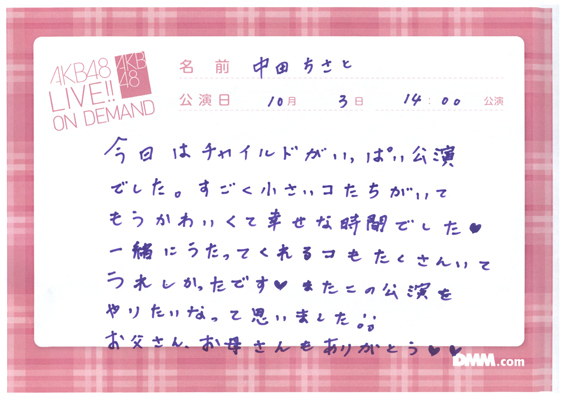 AKB48
LIVE!!
ON DEMAND
AKB
48
名前 中田ちさと
公演日 10月 3日 14:00 公演
今日はチャイルドがいっぱい公演
でした。すごく小さいコたちがいて
もうかわいくて幸せな時間でした♥
一緒にうたってくれるコもたくさんいて
うれしかったです♥ またこの公演を
やりたいなって思いました
お父さん、お母さんもありがとう♥♥
DMM.com